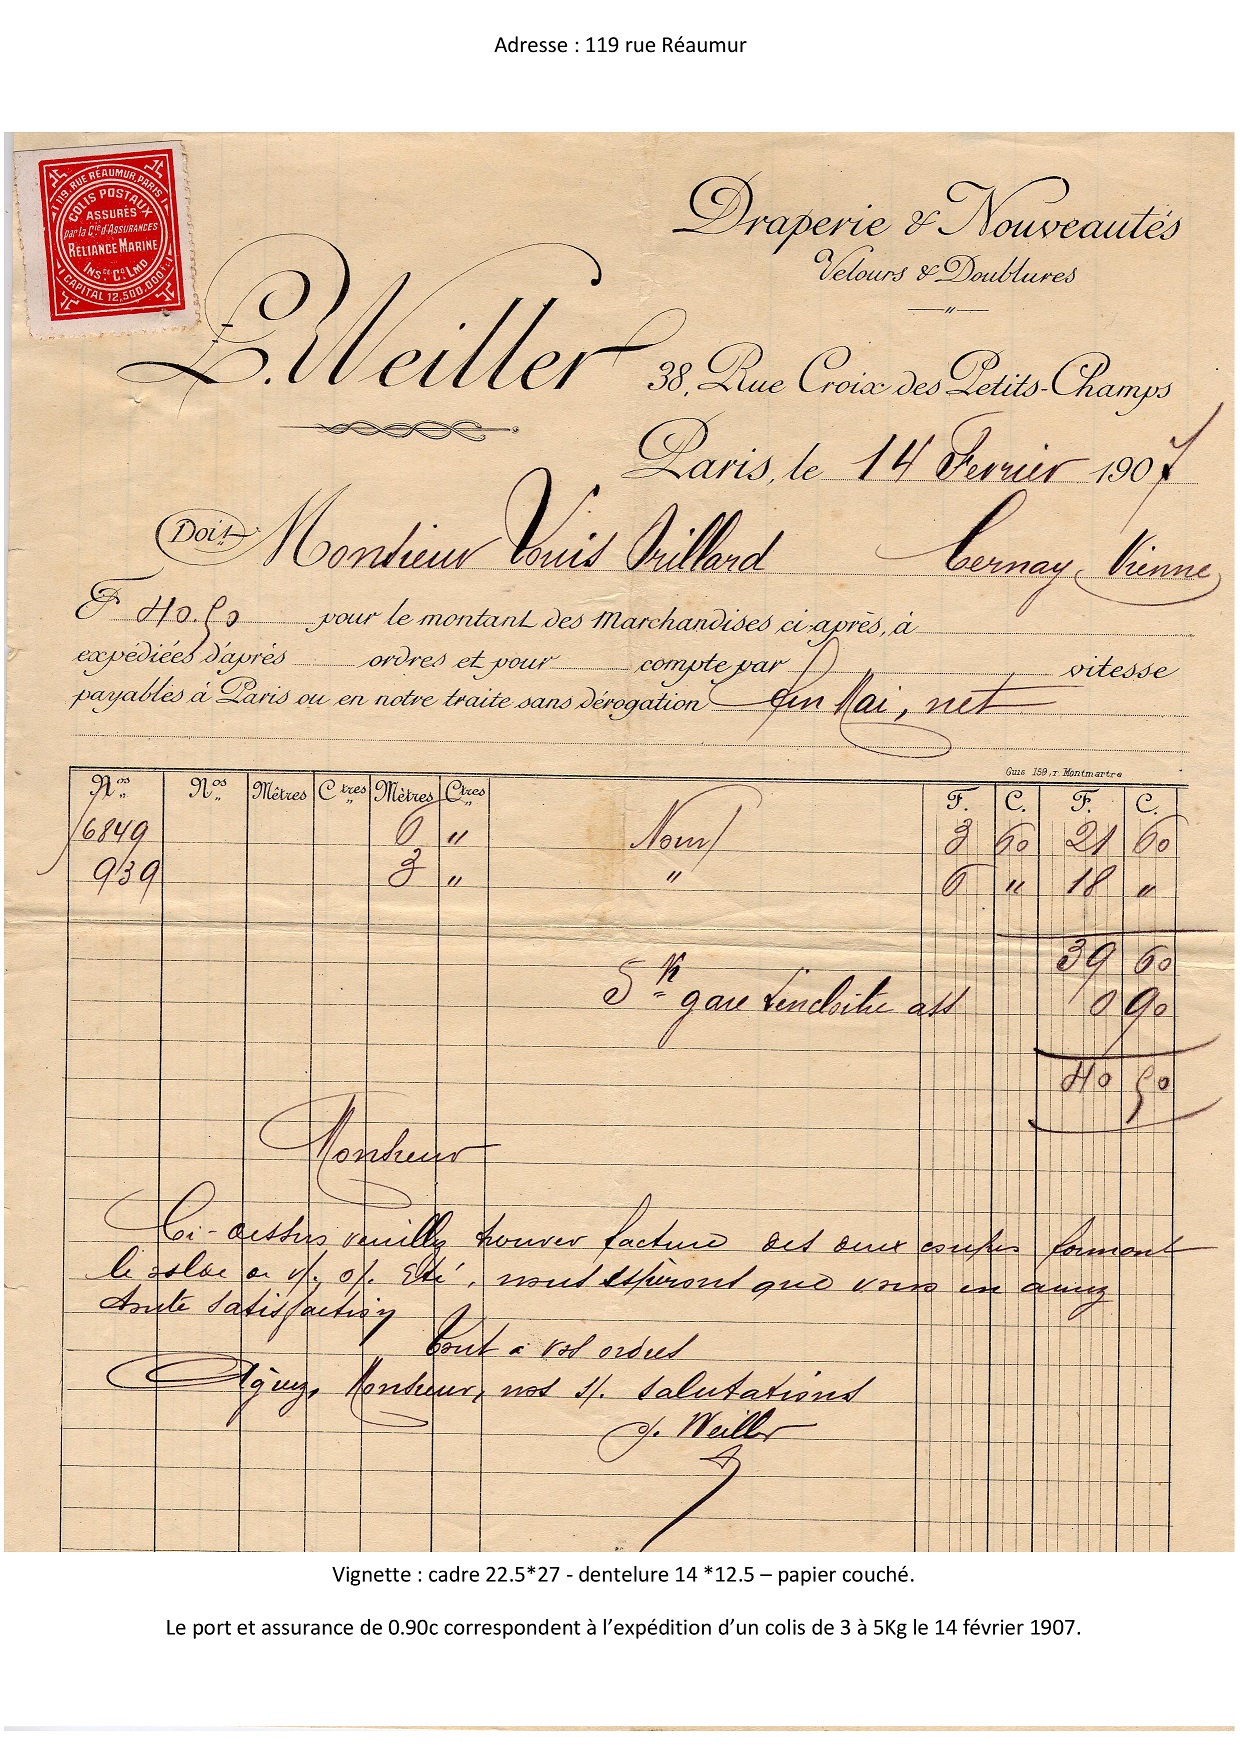 Adresse : 119 rue Réaumur
119, RUE RÉAUMUR, PARIS
COLIS POSTAUX
ASSURÉS
par la Cie d'ASSURANCES
RELIANCE MARINE
INSce Co LMD
CAPITAL 12,500,000f
Draperie & Nouveautés
Velours & Doublures
L. Weiller
38, Rue Croix des Petits-Champs
Paris, le 14 Fevrier 1907
Doit Monsieur Louis Brillard Cernay, Vienne
F 40.50 pour le montant des Marchandises ci-après, à
expédiées d'après ordres et pour compte par vitesse
payables à Paris ou en notre traite sans dérogation fin Mai, net
Guis 159, r Montmartre
Nos Nos Mètres Ctres Mètres Ctres F. C. F. C.
6849 6 " Nouv 3 60 21 60
939 3 " " 6 " 18 "
39 60
5 K gare ass 0 90
40 50
Monsieur
Ci-dessus veuillez trouver facture des deux coupes formant
le solde de v/. o/. Eté, nous espèrons que vous en aurez
toute satisfaction
Tout à vos ordres
Agréez, Monsieur, nos s/. salutations
Weiller
Vignette : cadre 22.5*27 - dentelure 14 *12.5 – papier couché.
Le port et assurance de 0.90c correspondent à l'expédition d'un colis de 3 à 5Kg le 14 février 1907.